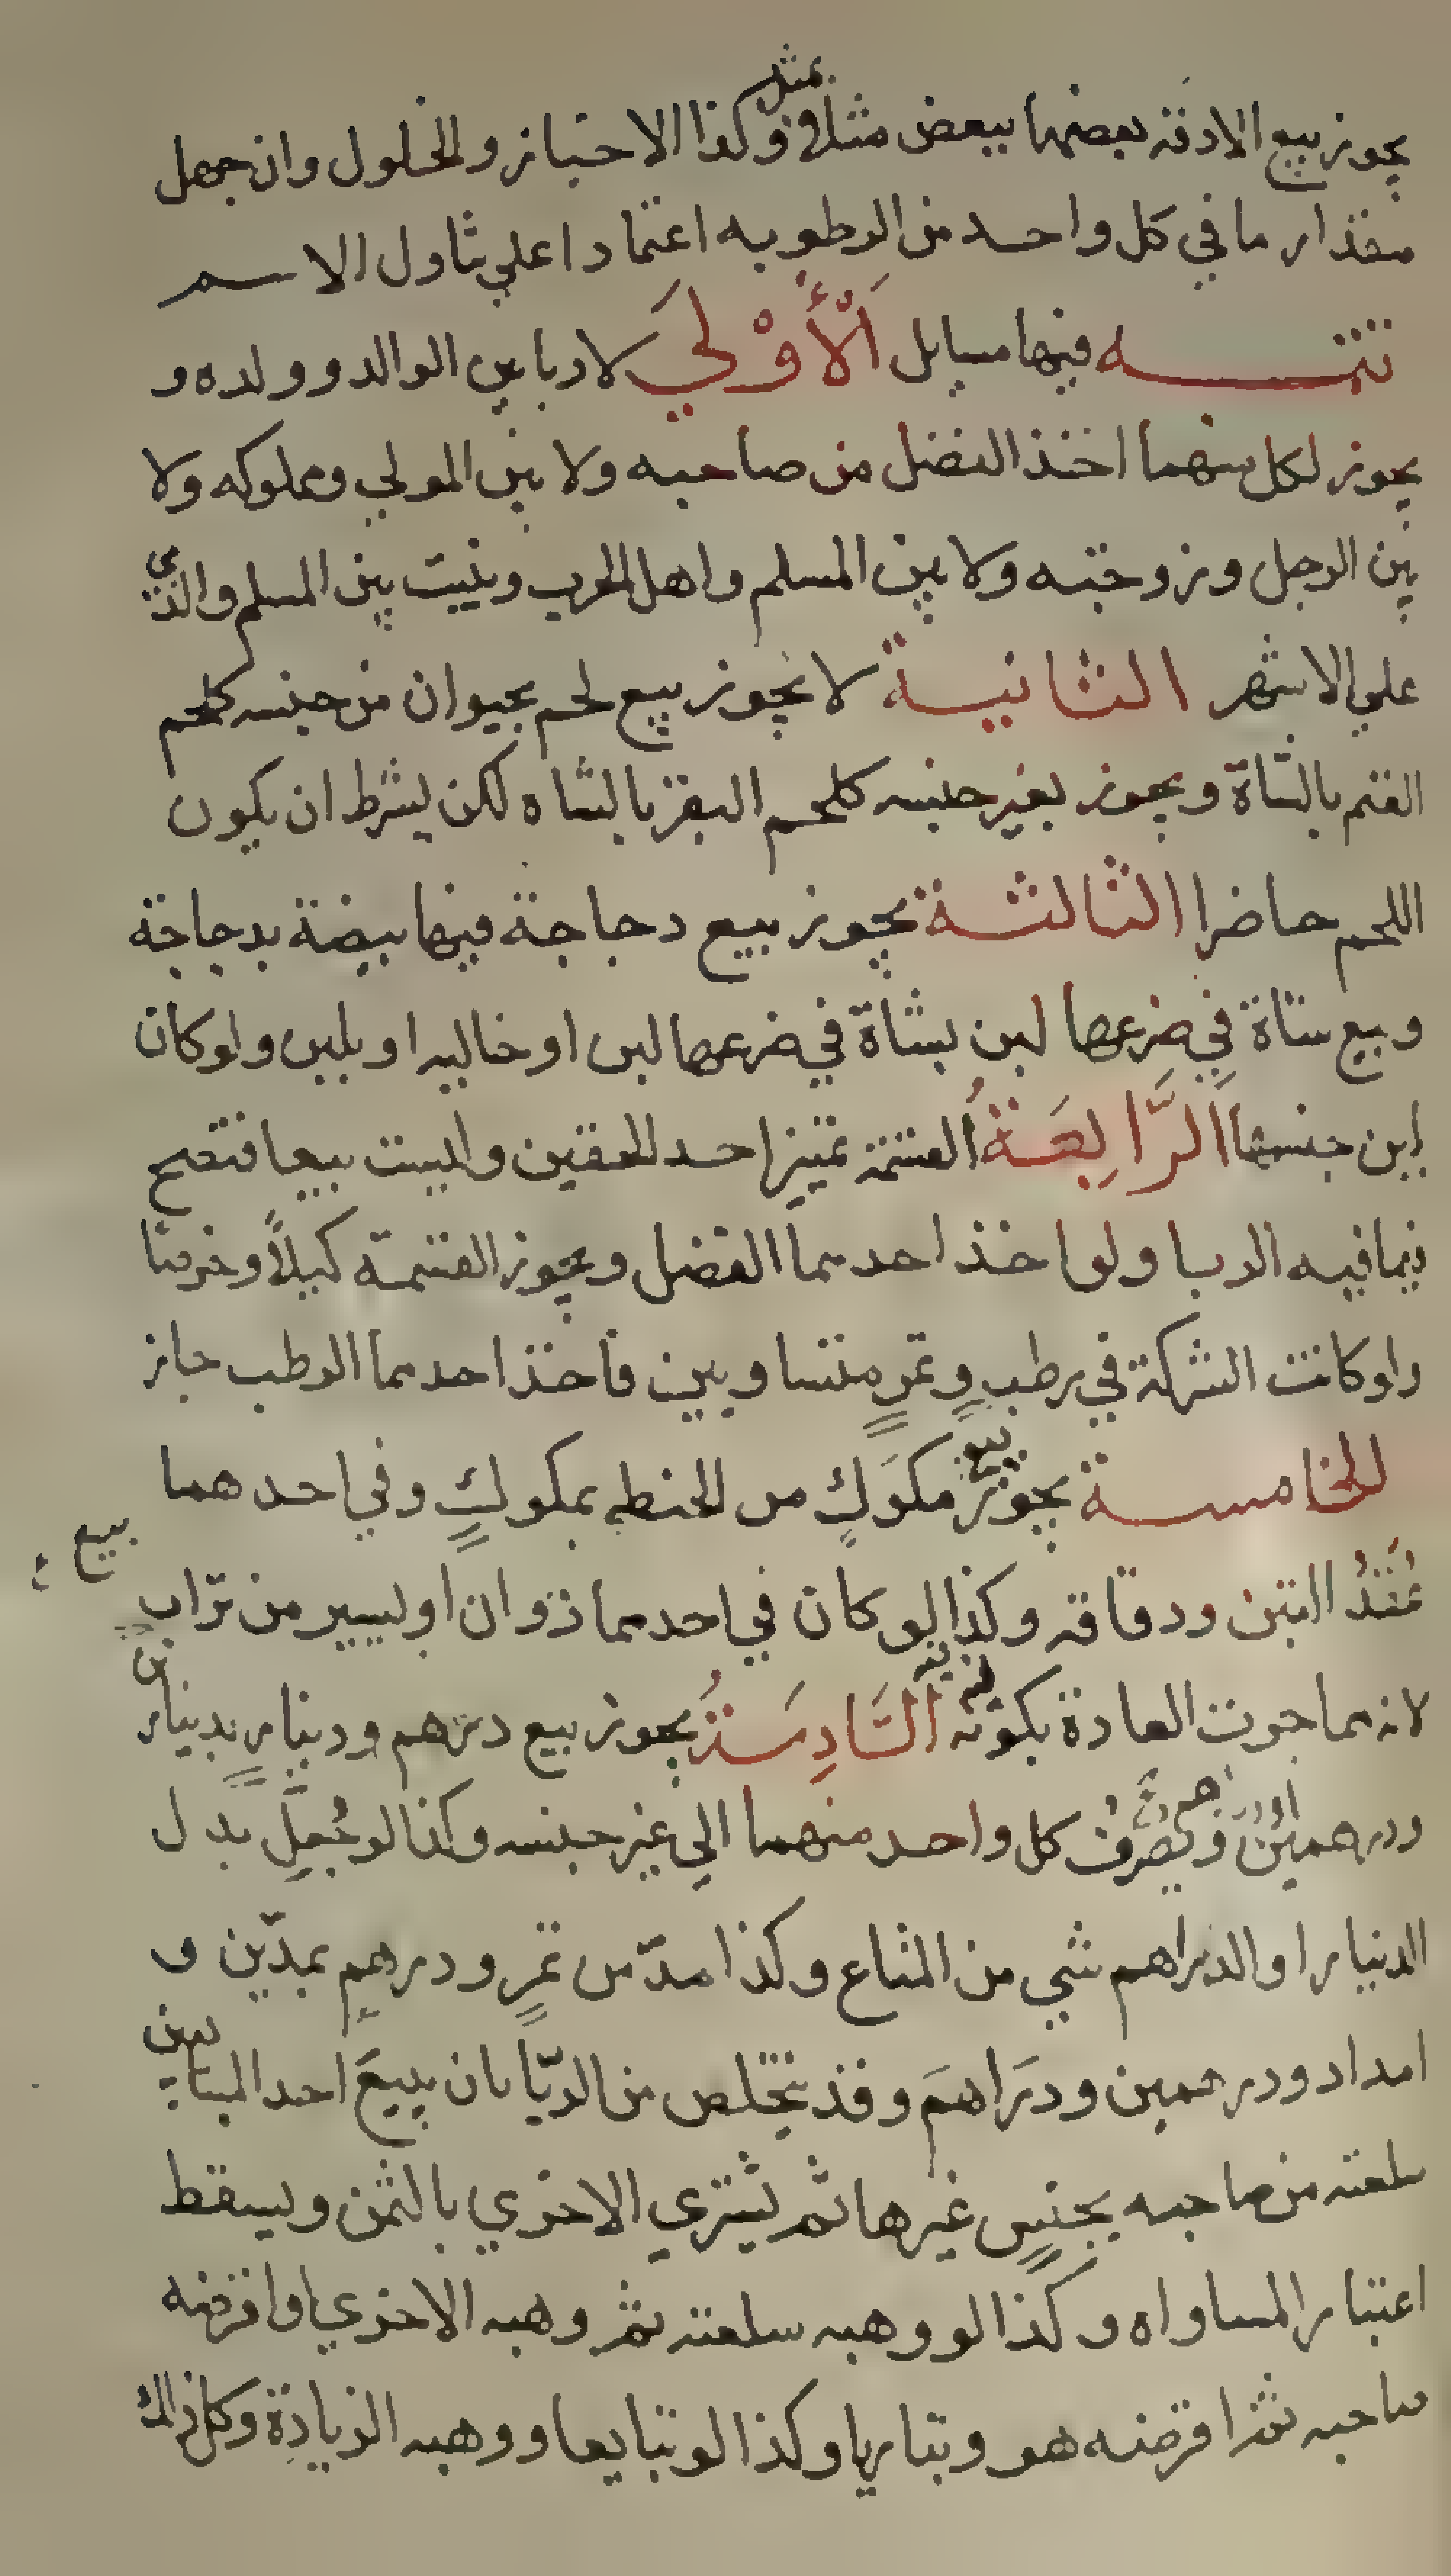 يجوز بيع الادقة بعضها ببعض مثلا بمثل وكذا الاخباز والخلول وان جهل
مقدار ما في كل واحد من الرطوبه اعتمادا علي تناول الاسم
تتمه فيها مسايل اَلْأُوْلَي لا ربا بين الوالد وولده و
يجوز لكل منهما اخذ الفضل من صاحبه ولا بين المولي ومملوكه ولا
بين الرجل وزوجته ولا بين المسلم واهل الحرب ويثبت بين المسلم والذمي
علي الاشهر الثانية لا يجوز بيع لحم بحيوان من جنسه كلحم
الغنم بالشاة ويجوز بغير جنسه كلحم البقر بالشاه لكن يشرط ان يكون
اللحم حاضرا الثالثة يجوز بيع دجاجة فيها بيضة بدجاجة
وبيع شاة في ضرعها لبن بشاة في ضرعها لبن او خاليه او بلبن ولو كان
لبن جنسها اَلرَّابِعَةُ القسمة تمييز احد الحقين وليست بيعا فتصح
فيما فيه الربا ولو اخذ احدهما الفضل ويجوز القسمة كيلاً وخرصا
ولو كانت الشركة في رطبٍ وتمرٍ متساويين فاخذ احدهما الرطب جاز
الخامسة يجوز بيع مكوكٍ من الحنطه بمكوكٍ وفي احدهما
بيع
عُقَدُ التبن ودقاقه وكذا لو كان في احدهما زوان او ليسير من تراب
لانه مما جرت العادة بكونه اَلسَّادِسَةُ يجوز بيع درهم ودينارٍ بدينارين
ودرهمين ويُصْرَفُ كل واحد منهما الي غير جنسه وكذا لو جُعِلَ بدل
الدينار او الدراهم شي من المتاع وكذا مدّ من تمرٍ ودرهمٍ بمدّين و
امداد ودرهمين ودرَاهمَ وقد يتخلص من الربا بان يبيعَ احد المتبايعين
سلعته من صاحبه بجنسٍ غيرها ثم يشتري الاخري بالثمن ويسقط
اعتبار المساواه وكذا لو وهبه سلعته ثم وهبه الاخري او اقرضه
صاحبه ثم اقرضه هو وتباريا وكذا لو تبايعا ووهبه الزيادة وكل ذلك